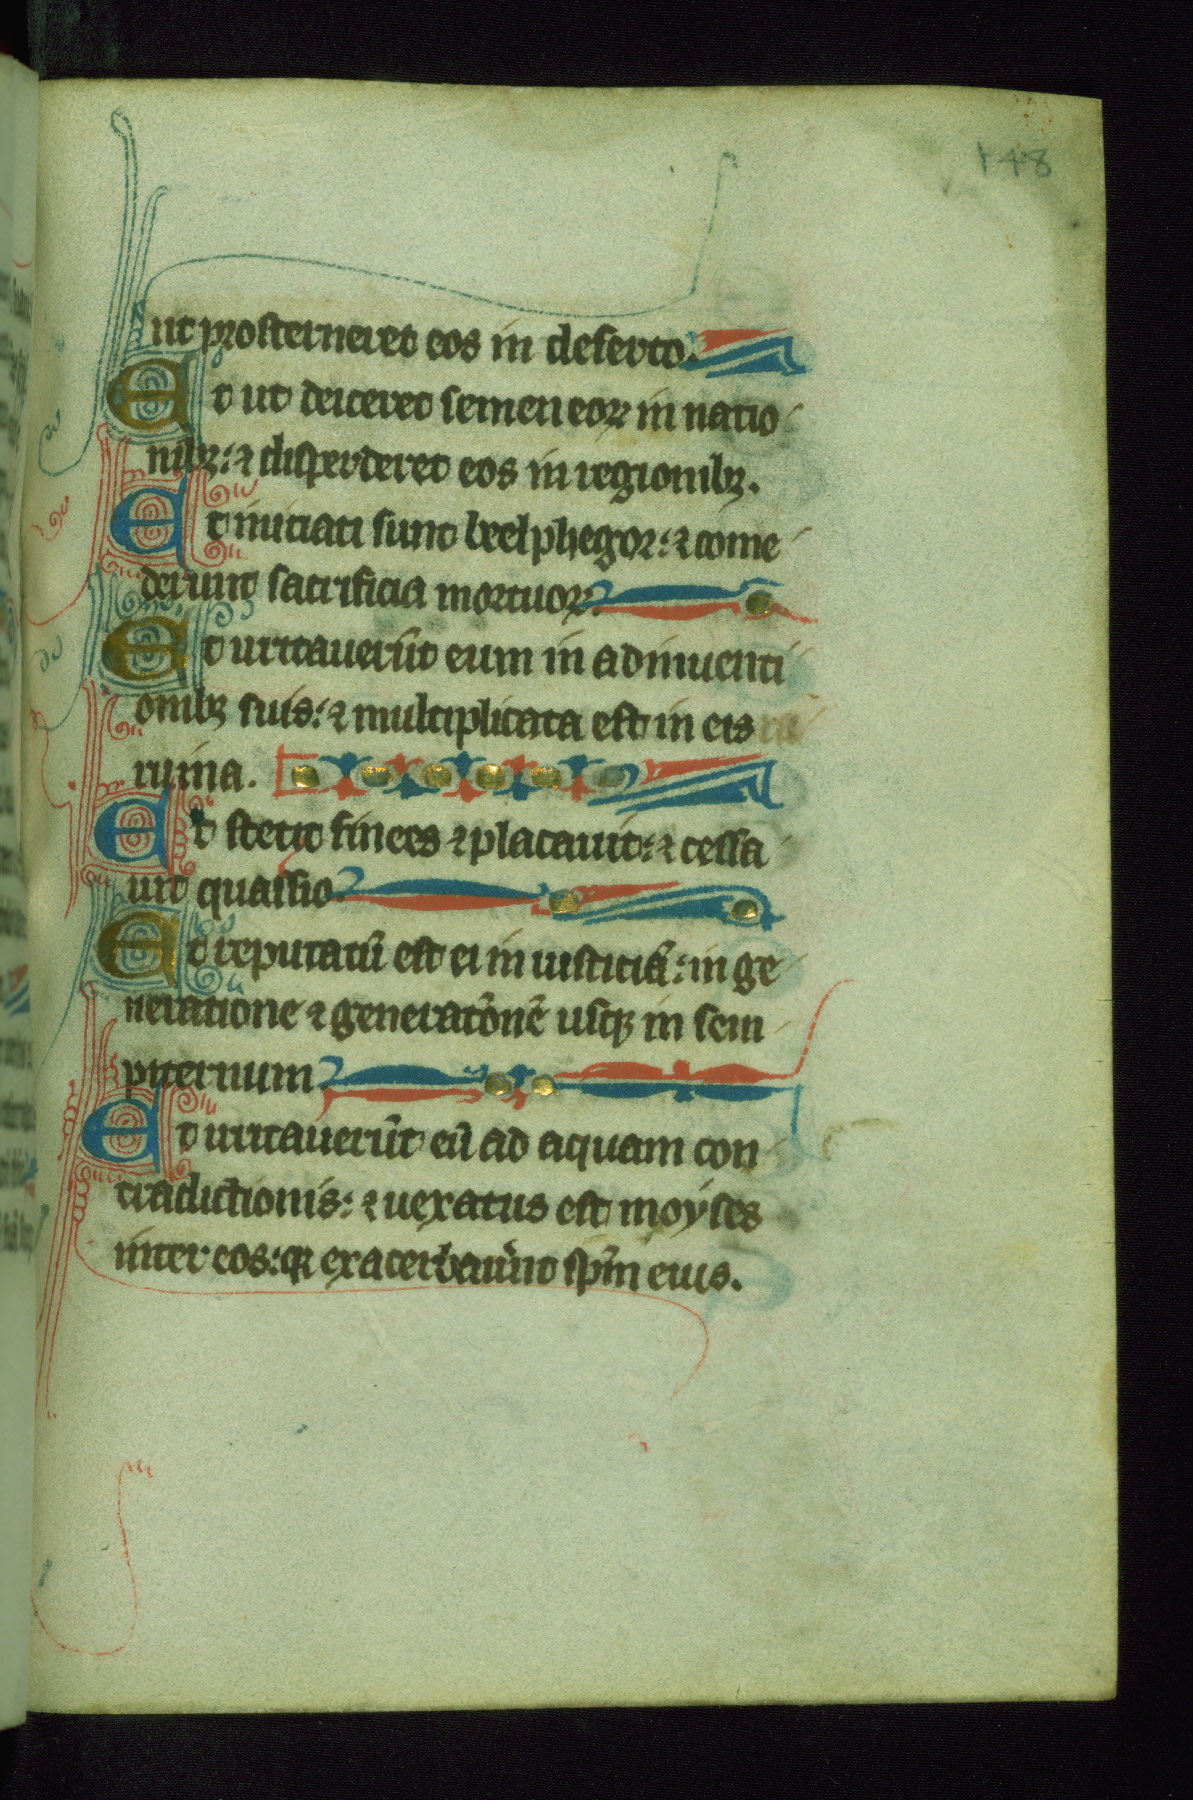 148
ut prosterneret eos in deserto.
Et ut deiceret semen eoꝝ in natio
nibꝫ: ⁊ disperderet eos in regionibꝫ.
Et initiati sunt beelphegor: ⁊ come
derunt sacrificia mortuoꝝ.
Et irritauerūt eum in adinuenti
onibꝫ suis: ⁊ multiplicata est in eis
ruina.
Et stetit finees ⁊ placauit: ⁊ cessa
uit quassio.
Et reputatū est ei in iusticiā: in ge
neratione ⁊ generatōnē usqꝫ in sem
piternum.
Et irritauerūt eū ad aquam con
tradictionis: ⁊ uexatus est moyses
inter eos: qꝛ exacerbauer̄t sp̄m eius.